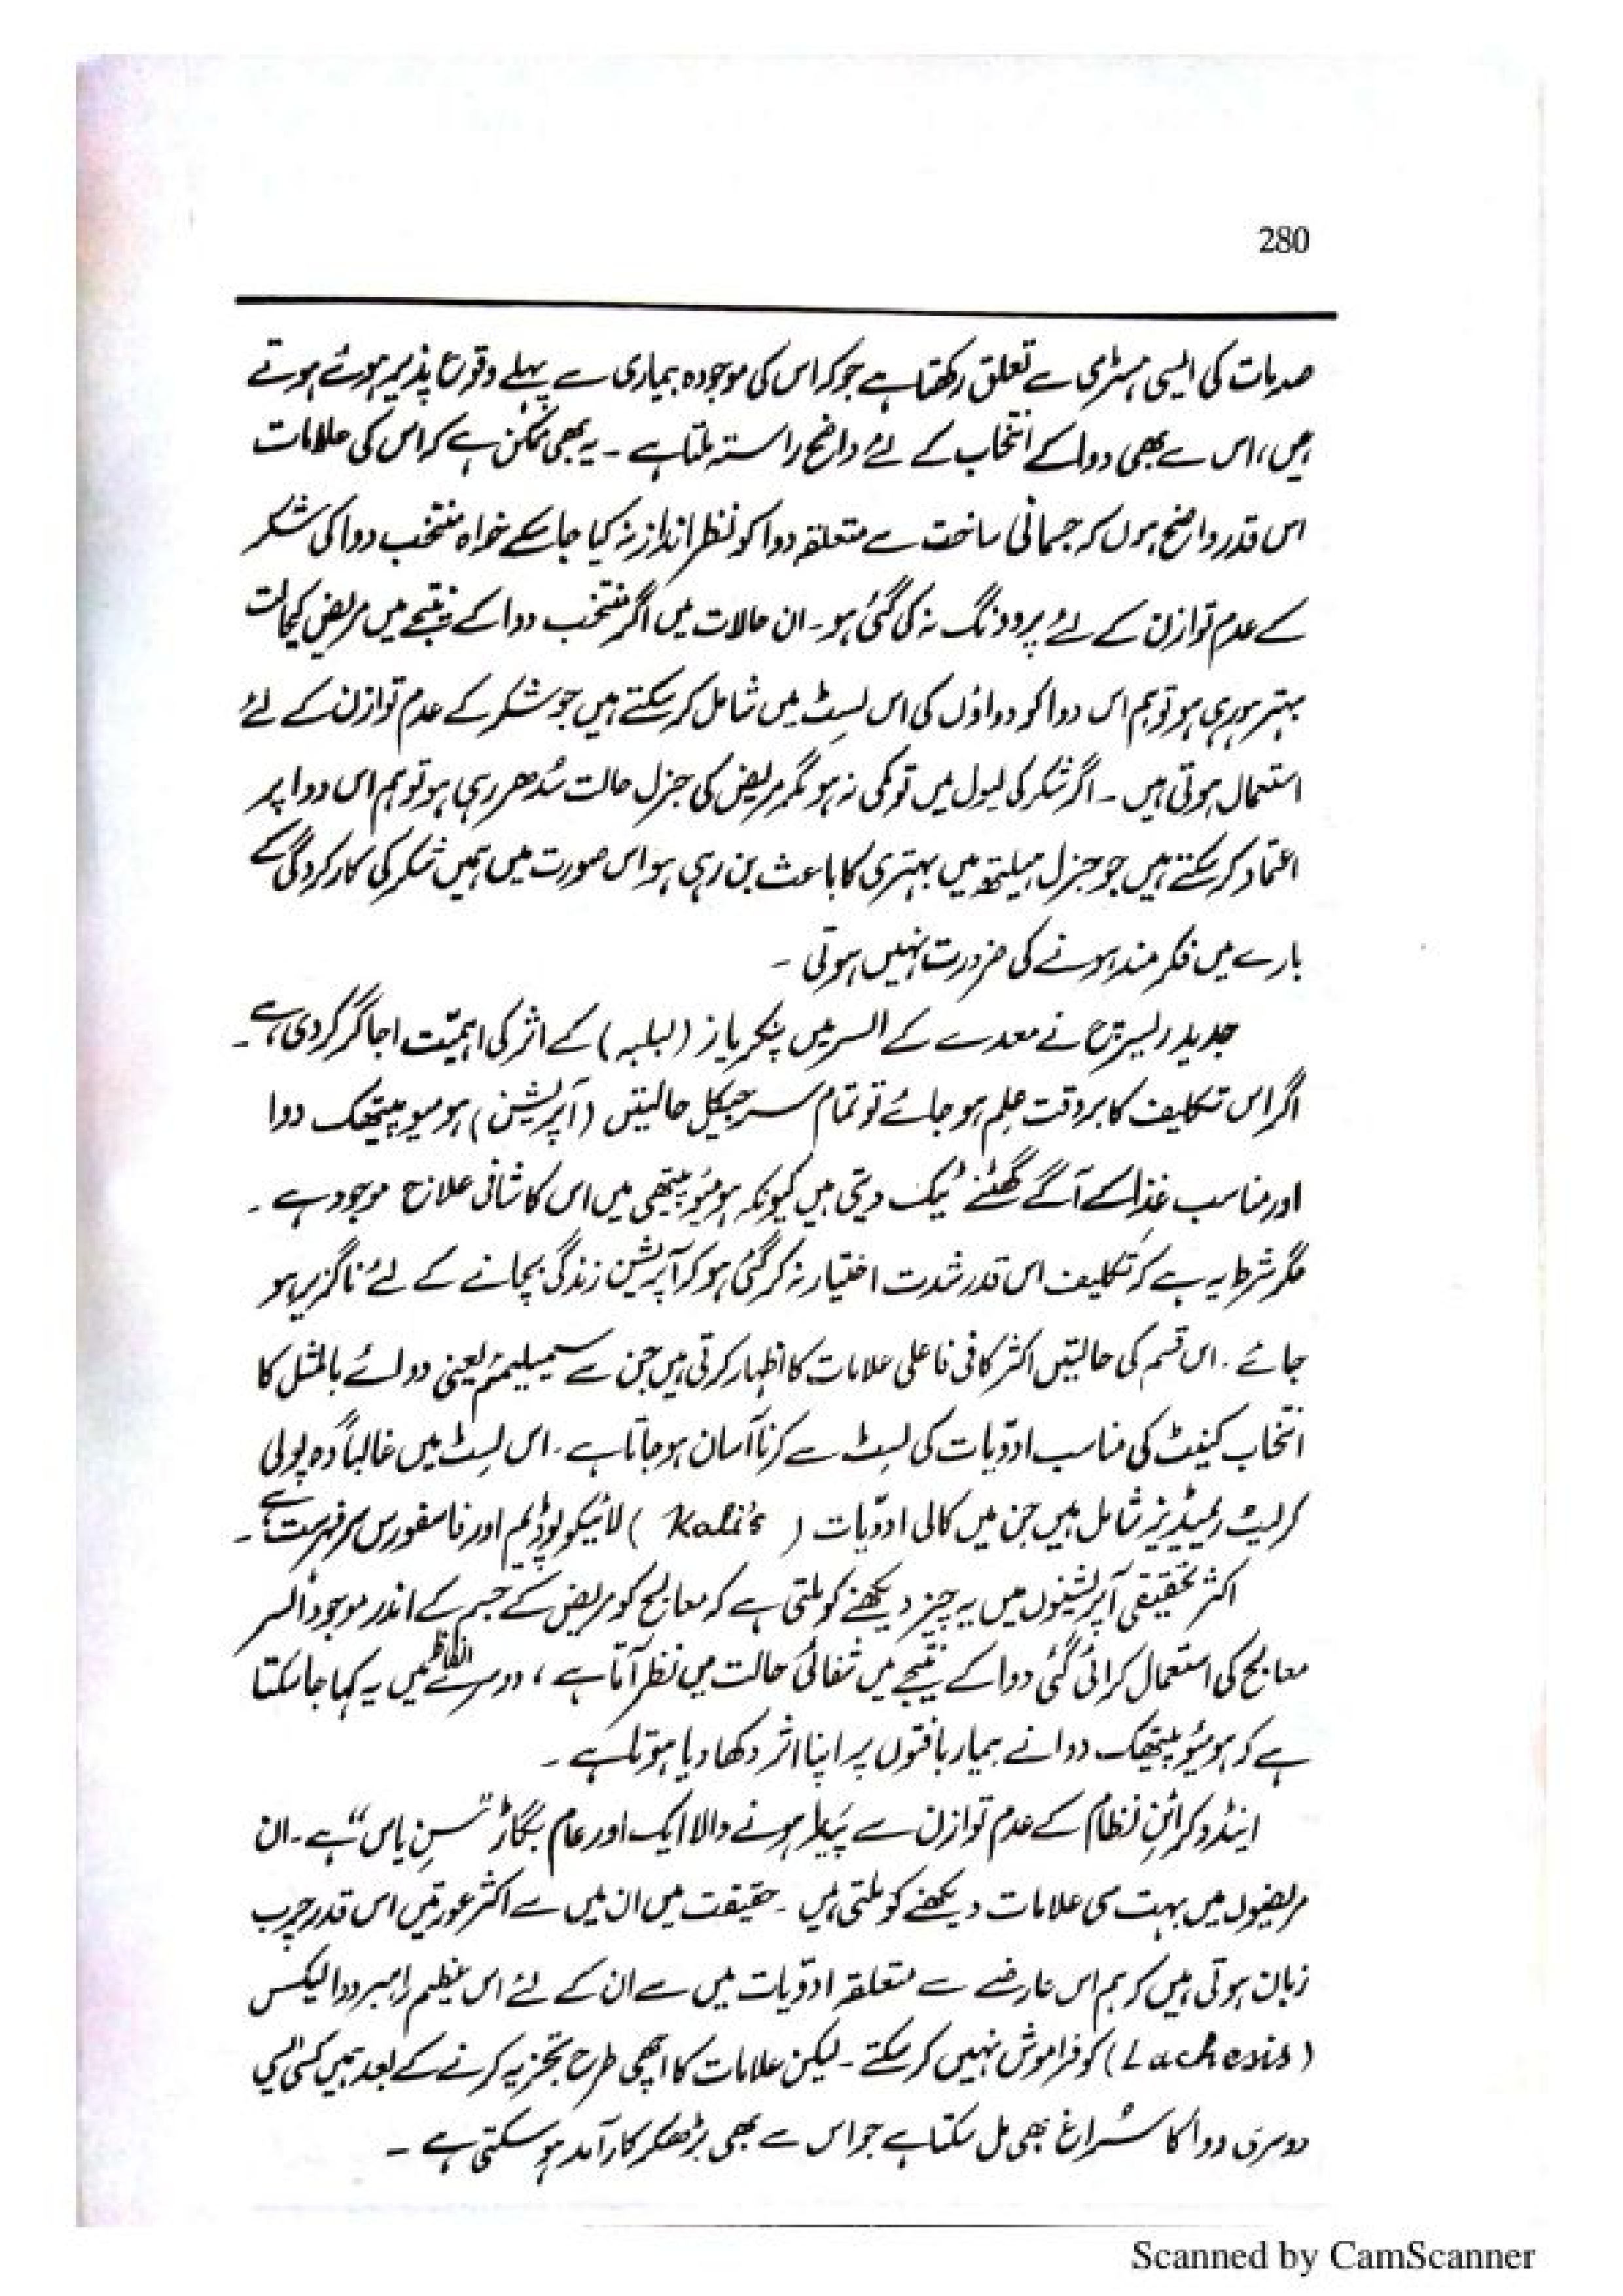 280
صدمات کی ایسی ہسٹری سے تعلق رکھتا ہے جو کہ اس کی موجودہ بیماری سے پہلے وقوع پذیر ہوئے ہوتے
ہیں، اس سے بھی دوا کے انتخاب کے لئے واضح راستہ ملتا ہے ۔ یہ بھی ممکن ہے کہ اس کی علامات
اس قدر واضح ہوں کہ جسمانی ساخت سے متعلقہ دوا کو نظر انداز نہ کیا جا سکے خواہ منتخب دوا کی شکر
کے عدم توازن کے لئے پروونگ نہ کی گئی ہو۔ ان حالات میں اگر منتخب دوا کے نتیجے میں مریض کی حالت
بہتر ہو رہی ہو تو ہم اس دوا کو دواؤں کی اس لسٹ میں شامل کر سکتے ہیں جو شکر کے عدم توازن کے لئے
استعمال ہوتی ہیں ۔ اگر شکر کی لیول میں تو کمی نہ ہو مگر مریض کی جنرل حالت سُدھر رہی ہو تو ہم اس دوا پر
اعتماد کر سکتے ہیں جو جنرل ہیلتھ میں بہتری کا باعث بن رہی ہو اس صورت میں ہمیں شکر کی کارکردگی کے
بارے میں فکر مند ہونے کی ضرورت نہیں ہوتی ۔
جدید ریسرچ نے معدے کے السر میں پنکریاز (لبلبہ) کے اثر کی اہمیّت اجاگر کر دی ہے ۔
اگر اس تکلیف کا بر وقت علِم ہو جائے تو تمام سرجیکل حالیتں (آپریشن) ہومیوپیتھک دوا
اور مناسب غذا کے آگے گھٹنے ٹیک دیتی ہیں کیونکہ ہومیوپیتھی میں اس کا شافی علاج موجود ہے ۔
مگر شرط یہ ہے کہ تکلیف اس قدر شدت اختیار نہ کر گئی ہو کہ آپریشن زندگی بچانے کے لئے ناگزیر ہو
جائے ۔ اس قسم کی حالتیں اکثر کافی فاعلی علامات کا اظہار کرتی ہیں جن سے سیمیلیمم یعنی دوائے بالمثل کا
انتخاب کینٹ کی مناسب ادوّیات کی لسٹ سے کرنا آسان ہو جاتا ہے ۔ اس لسٹ میں غالباً وہ پولی
کرلیٹ ریمیڈیز شامل ہیں جن میں کالی ادوّیات ( Kali's ) لائیکوپوڈیم اور فاسفورس سرفہرست ہے ۔
اکثر تحقیقی آپریشنوں میں یہ چیز دیکھنے کو ملتی ہے کہ معالج کو مریض کے جسم کے اندر موجود السر
معالج کی استعمال کرائی گئی دوا کے نتیجے میں شفائی حالت میں نظر آتا ہے ، دوسرے الفاظ میں یہ کہا جا سکتا
ہے کہ ہومیوپیتھک دوا نے بیمار بافتوں پر اپنا اثر دکھا دیا ہوتا ہے ۔
اینڈوکرائن نظام کے عدم توازن سے پیدا ہونے والا ایک اور عام بگاڑ "سنِ یاس" ہے ۔ ان
مریضوں میں بہت سی علامات دیکھنے کو ملتی ہیں ۔ حقیقت میں ان میں سے اکثر عورتیں اس قدر چرب
زبان ہوتی ہیں کہ ہم اس عارضے سے متعلقہ ادوّیات میں سے ان کے لئے اس عظیم راہبر دوا لیکسس
(Lachesis) کو فراموش نہیں کر سکتے ۔ لیکن علامات کا اچھی طرح تجزیہ کرنے کے بعد ہمیں کسی ایسی
دوسری دوا کا سُراغ بھی مل سکتا ہے جو اس سے بھی بڑھ کر کارآمد ہو سکتی ہے ۔
Scanned by CamScanner